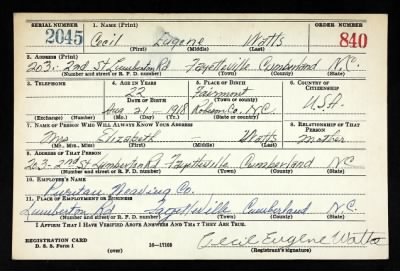 SERIAL NUMBER 1. NAME (Print) ORDER NUMBER
2045 Cecil Eugene Watts 840
(First) (Middle) (Last)
2. ADDRESS (Print)
203- 2nd St Lumberton Rd Fayetteville Cumberland N.C.
(Number and street or R. F. D. number) (Town) (County) (State)
3. TELEPHONE 4. AGE IN YEARS 5. PLACE OF BIRTH 6. COUNTRY OF CITIZENSHIP
22 Fairmont
DATE OF BIRTH (Town or county)
Aug 21 - 1918 Robeson Co. N.C. U.S.A.
(Exchange) (Number) (Mo.) (Day) (Yr.) (State or country)
7. NAME OF PERSON WHO WILL ALWAYS KNOW YOUR ADDRESS 8. RELATIONSHIP OF THAT PERSON
Mrs Elizabeth - Watts Mother
(Mr., Mrs., Miss) (First) (Middle) (Last)
9. ADDRESS OF THAT PERSON
203-2nd St Lumberton Rd Fayetteville Cumberland NC
(Number and street or R. F. D. number) (Town) (County) (State)
10. EMPLOYER'S NAME
Puritan Weaving Co.
11. PLACE OF EMPLOYMENT OR BUSINESS
Lumberton Rd Fayetteville Cumberland NC.
(Number and street or R. F. D. number) (Town) (County) (State)
I AFFIRM THAT I HAVE VERIFIED ABOVE ANSWERS AND THAT THEY ARE TRUE.
REGISTRATION CARD
D. S. S. Form 1 (over) 16-17105 Cecil Eugene Watts
(Registrant's signature)